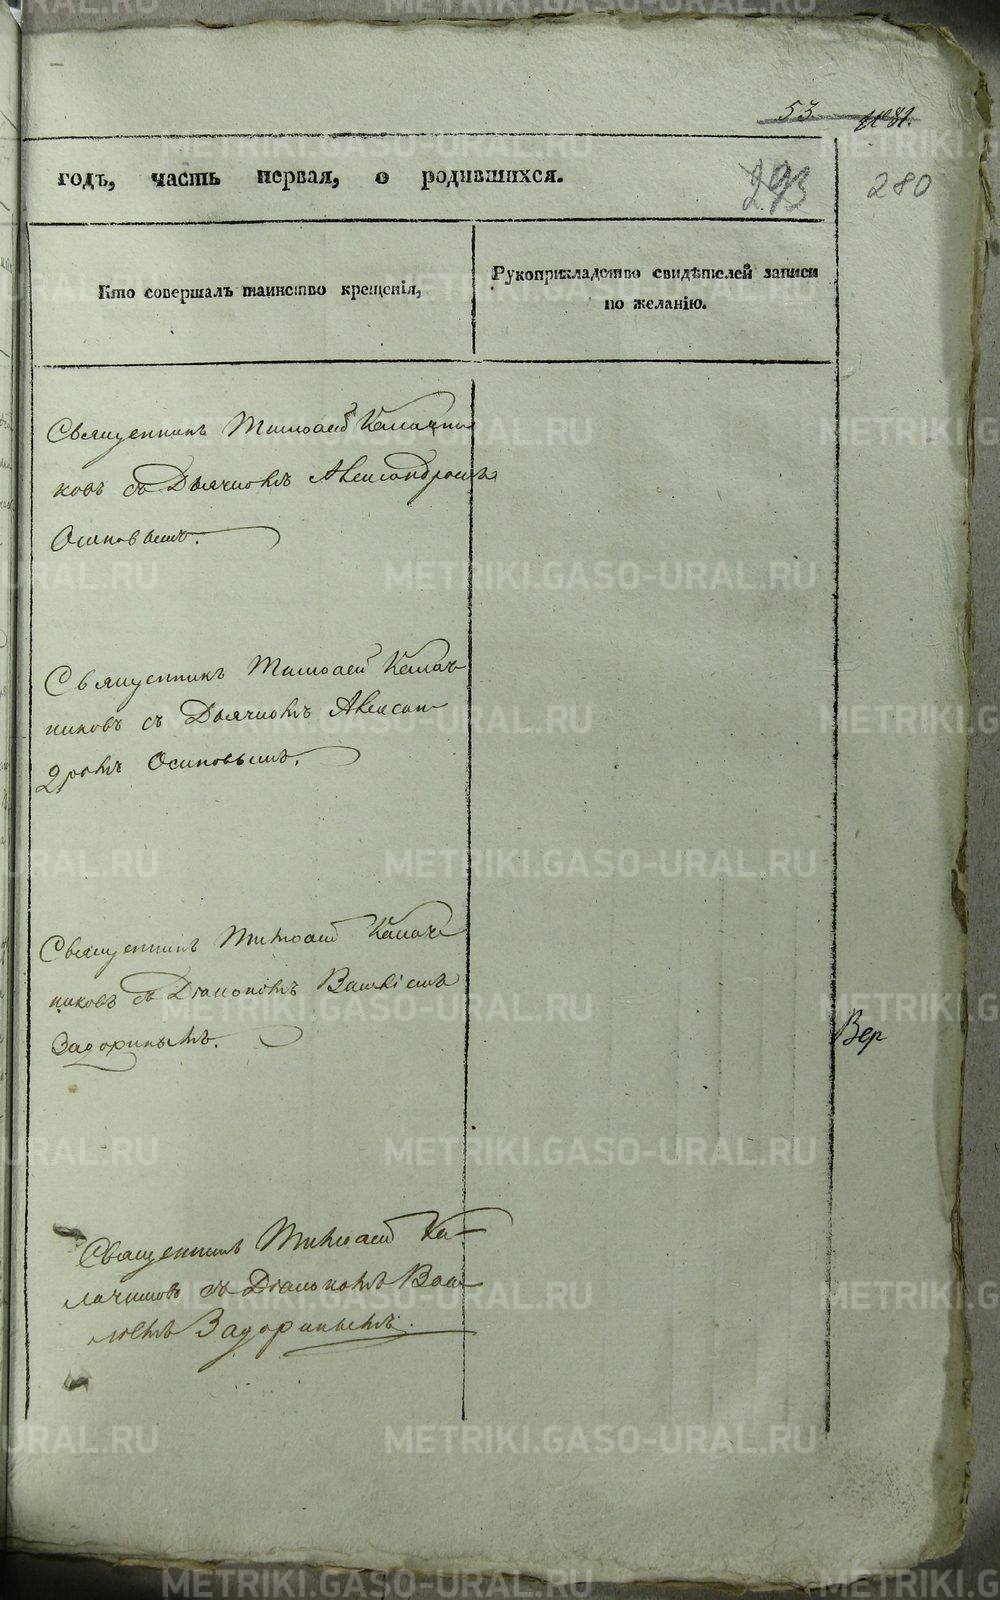 53
280
293
годъ, часть первая, о родившихся.
Кто совершалъ таинство крещенія,
Рукоприкладство свидѣтелей записи
по желанію.
Священникъ Тимоѳей Калачни
ковъ съ Дьячкомъ Александромъ
Осиповымъ.
Священникъ Тимоѳей Калач
никовъ съ Дьячкомъ Алексан
дромъ Осиповымъ.
Священникъ Тимоѳей Калач
никовъ съ Діакономъ
Задоринымъ.
Вер
Священникъ Тимоѳей Ка-
лачниковъ съ Діакономъ
Задоринымъ.
METRIKI.GASO-URAL.RU